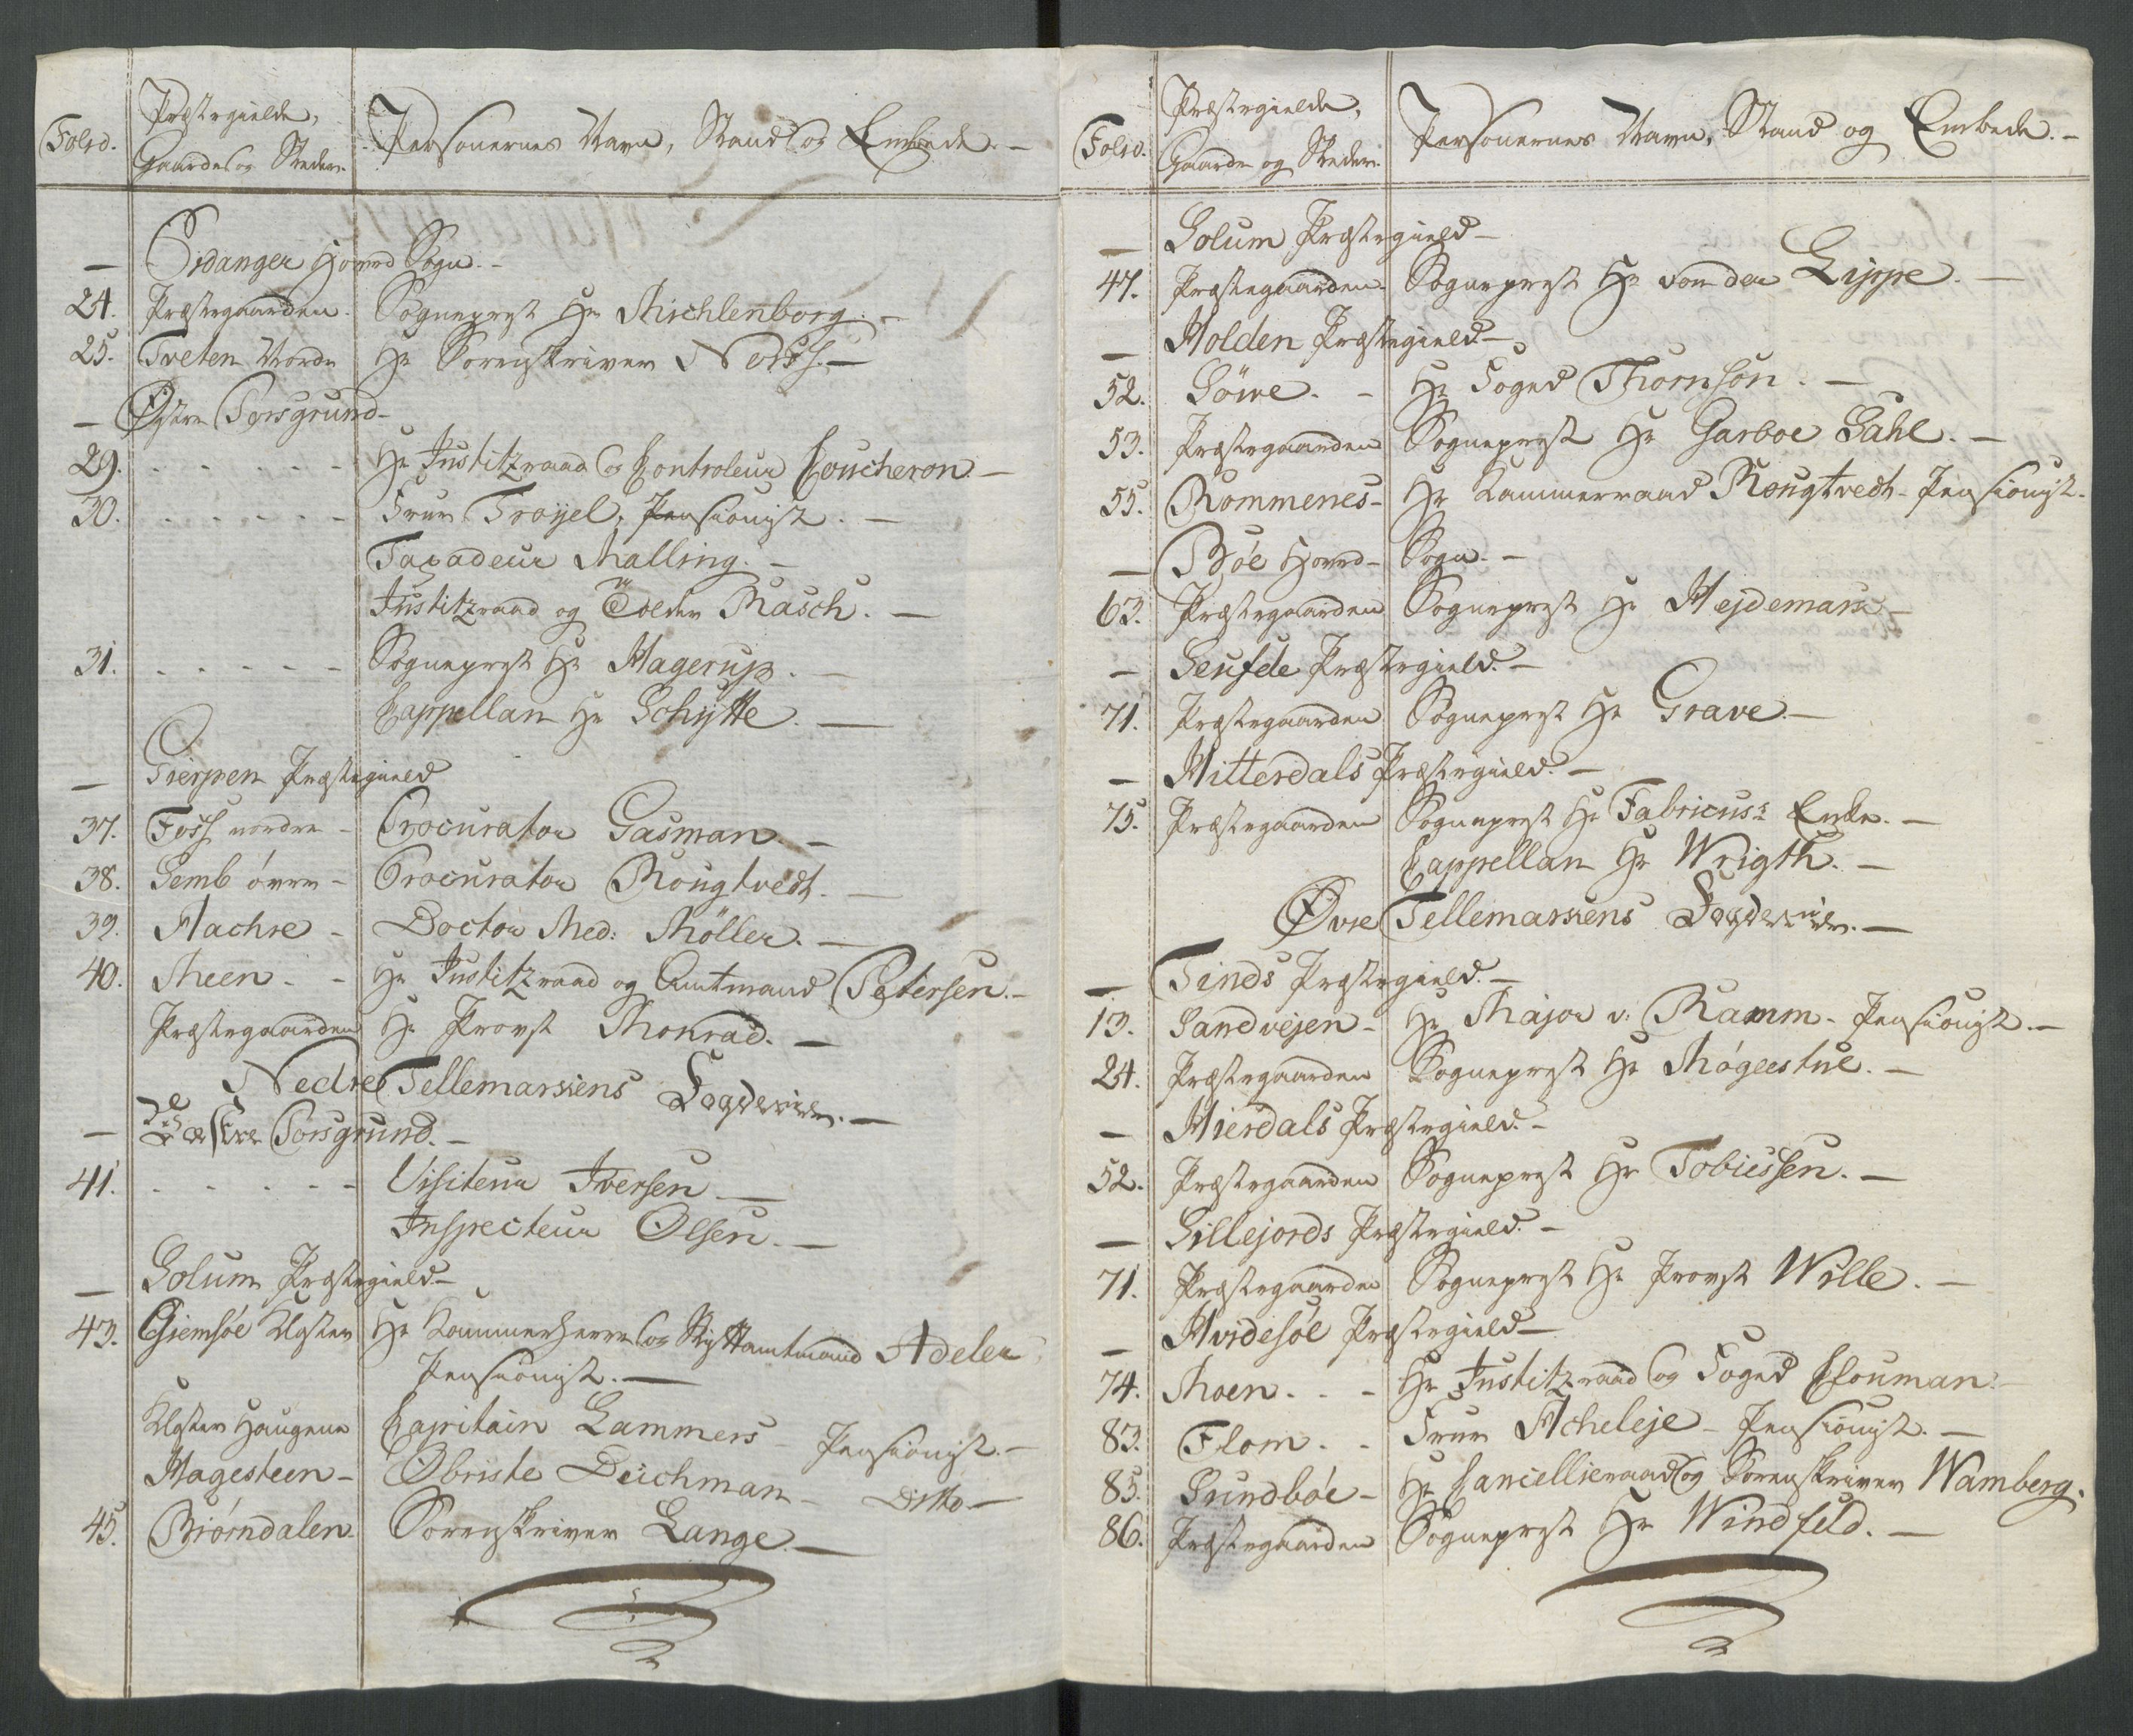 Folio.
Præstegielde,
Gaarde og Steder.
Personernes Navn, Stand og Embede. -
— Eidanger Hoved Sogn. -
24. Præstegaarden. Sognepræst Hr Michlenborg. -
25. Tveten Nordre Hr Sorenskriver Norss. —
— Østre Porsgrund -
29. - - - - - Hr Justitzraad og Controleur Coucheron. —
30. - - - - - - Frue Trojel, Pensionist. —
Taxadeur Malling. -
Justitzraad og Tolder Rasch. —
31. - - - - - Sognepræst Hr Hagerup. —
Cappellan Hr Schytte. —
— Gierpen Præstegield
37. Foss nordre - Procurator Gasman. -
38. Semb övre - Procurator Rougtvedt. —
39. Aachre - Doctor Med: Möller. —
40. Meen - - Hr Justitzraad og Amtmand Petersen. -
Præstegaarden Hr Provst Monrad. —
Nedre Tellemarkens Fogderie. —
— Vestre Porsgrund. -
41. - - - - - Visiteur Iversen —
Inspecteur Olsen. —
— Solum Præstegield —
43. Giemsöe Kloster Hr Kammerherre og Stiftamtmand Adeler
Pensionist. —
Kloster Haugene Capitain Lammers - Pensionist. —
Hagesteen - Obriste Deichman - Ditto. —
45. Biörndalen Sorenskriver Lange. —
Folio.
Præstegielde,
Gaarde og Steder.
Personernes Navn, Stand og Embede. -
— Solum Præstegield —
47. Præstegaarden. Sognepræst Hr von der Lippe. —
— Holden Præstegield —
52. Söwe. - Hr Foged Thornsön. —
53. Præstegaarden Sognepræst Hr Garboe Dahl. —
55. Rommenes - Hr Kammerraad Rougtvedt - Pensionist.
— Böe Hoved - Sogn. -
63. Præstegaarden Sognepræst Hr Hejdeman —
— Seufde Præstegield. —
71. Præstegaarden Sognepræst Hr Grave. —
— Hitterdals Præstegield. —
75. Præstegaarden Sognepræst Hr Fabricius's Enke. —
Cappellan Hr Wrigth. —
Øvre Tellemarkens Fogderie. —
— Tinds Præstegield. —
13. Sandvejen - Hr Major v: Ramm - Pensionist. —
24. Præstegaarden Sognepræst Hr Mögeestue. —
— Hierdals Præstegield. -
52. Præstegaarden Sognepræst Hr Tobiessen. —
— Sillejords Præstegield. -
71. Præstegaarden Sognepræst Hr Provst Wille. —
— Hvidesöe Præstegield —
74. Moen. - - Hr Justitzraad og Foged Clouman. -
83. Flom. - Frue Acheleje - Pensionist. —
85. Sundböe - Hr Cancellieraad og Sorenskriver Wamberg.
86. Præstegaarden Sognepræst Hr Windfeld. —